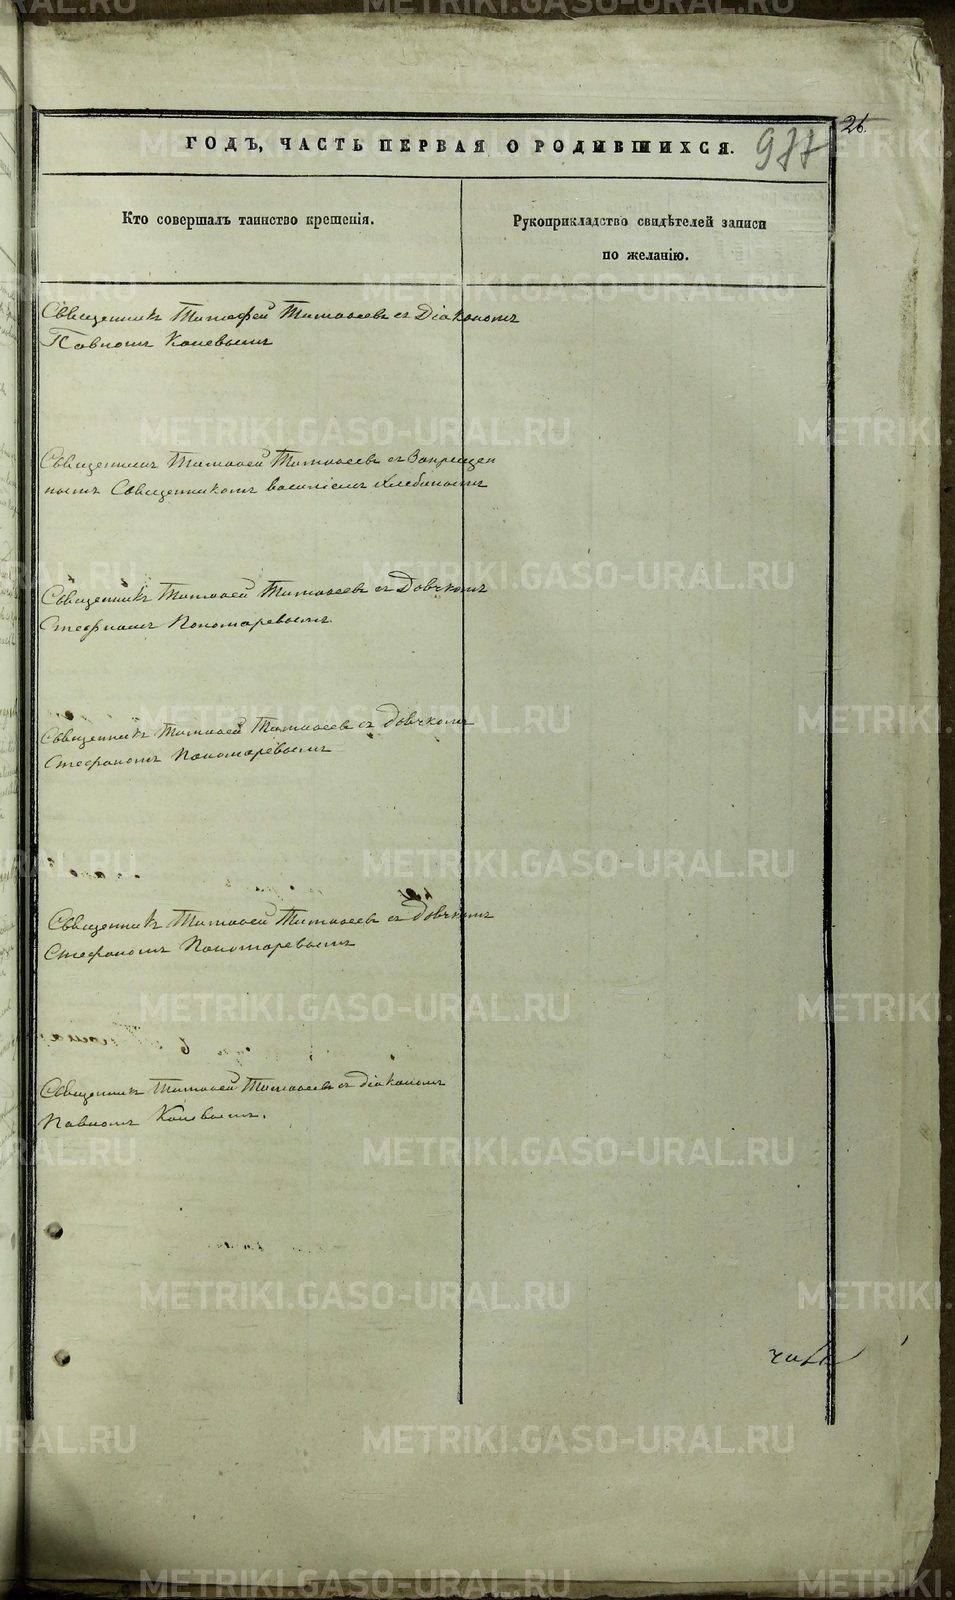 26.
ГОДЪ, ЧАСТЬ ПЕРВАЯ О РОДИВШИХСЯ.
977
Кто совершалъ таинство крещенія.
Рукоприкладство свидѣтелей записи
по желанію.
Священникъ Тимофей Тимофеевъ съ Діакономъ
Павломъ Коневымъ
Священникъ Тимофей Тимофеевъ съ Запрещен
нымъ Священникомъ Василіемъ Хлебинымъ
Священникъ Тимофей Тимофеевъ съ Дьячкомъ
Стефаномъ Пономаревымъ
Священникъ Тимофей Тимофеевъ съ Дьячкомъ
Стефаномъ Пономаревымъ
Священникъ Тимофей Тимофеевъ съ Дьячкомъ
Стефаномъ Пономаревымъ
Священникъ Тимофей Тимофеевъ съ Діакономъ
Павломъ Коневымъ.
METRIKI.GASO-URAL.RU